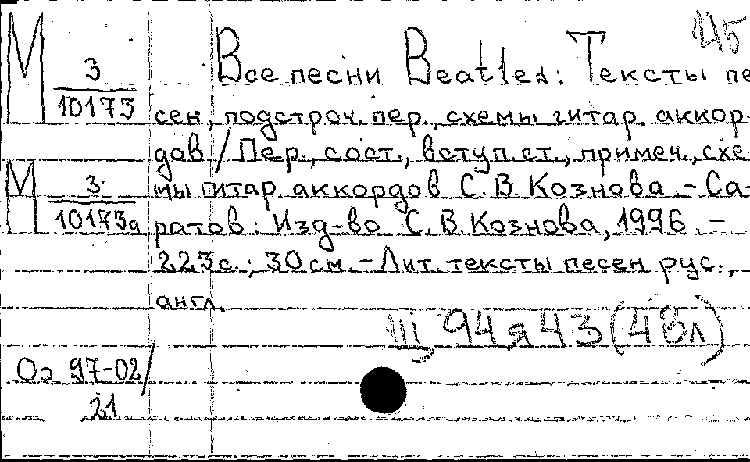 145
М 3
10173
Все песни Beatles: Тексты пе
сен, подстроч. пер., схемы гитар. аккор-
дов / Пер., сост., вступ. ст., примеч., схе-
М 3
10173а
мы гитар. аккордов С.В. Кознова. - Са-
ратов: Изд-во С.В. Кознова, 1996. -
223с.; 30см. - Лит. тексты песен рус.,
англ.
Щ 94 я 43 (4Вл)
Оэ 97-02/
21